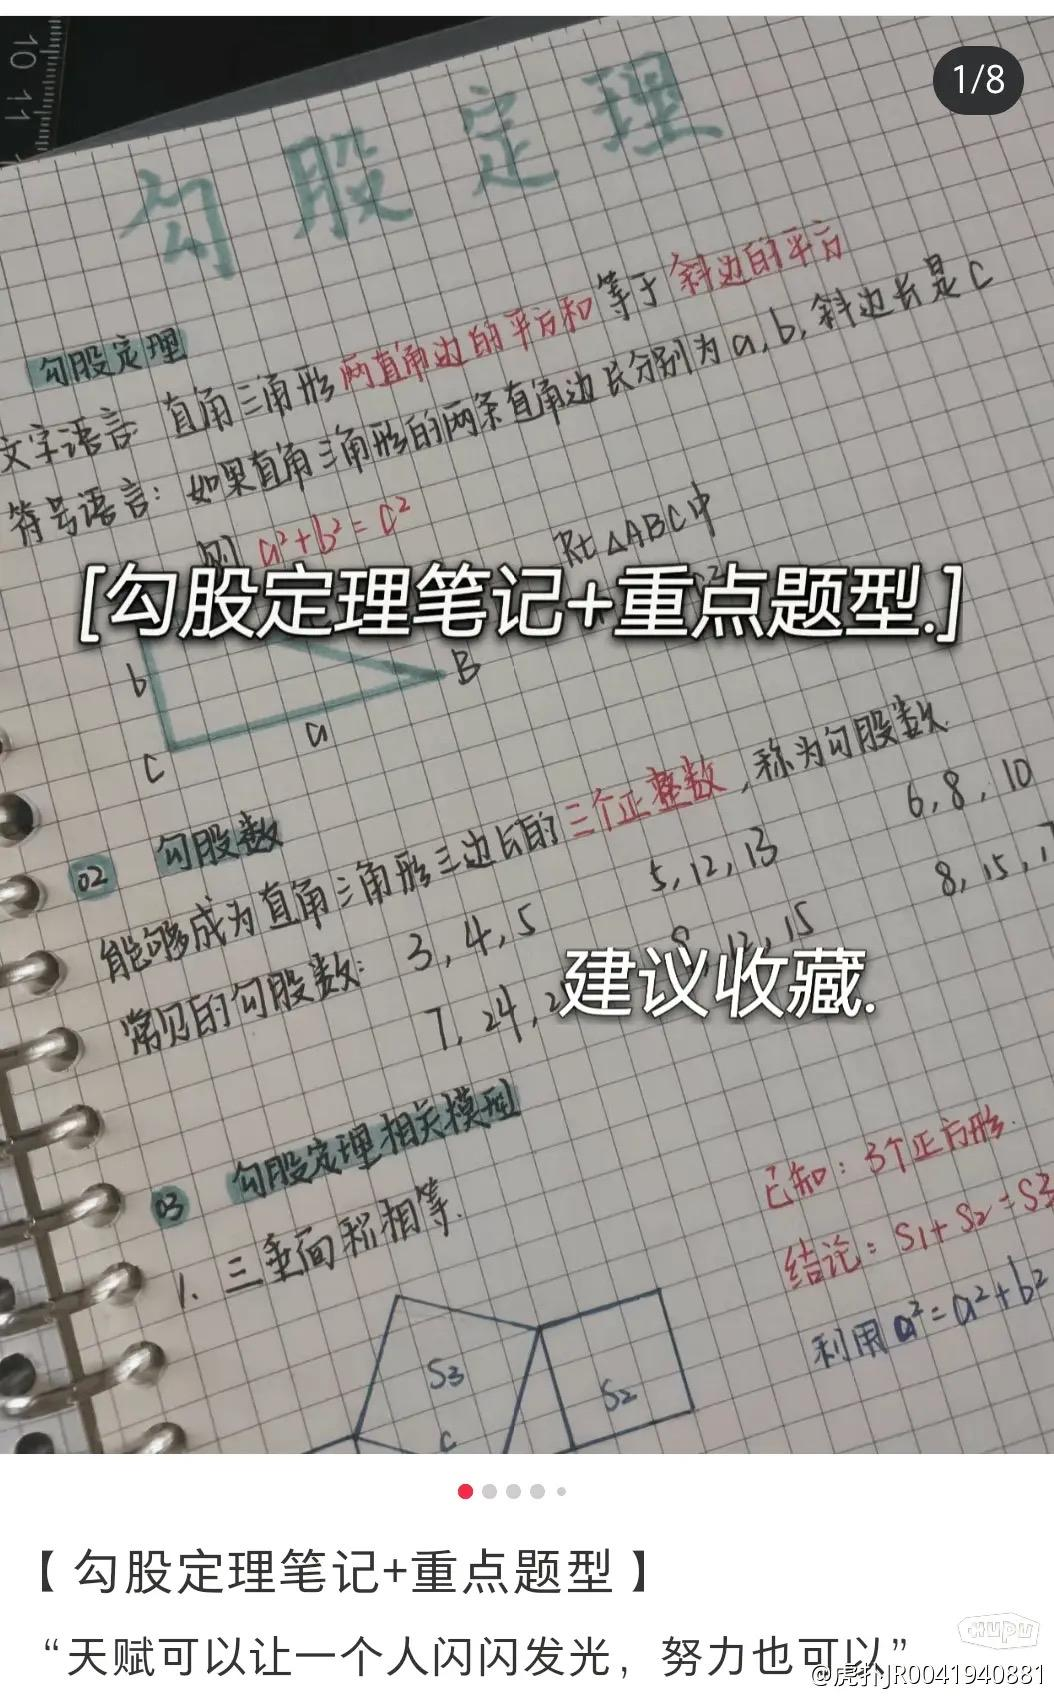 10 11
1/8
勾股定理
勾股定理
文字语言：直角三角形两直角边的平方和等于斜边的平方
符号语言：如果直角三角形的两条直角边长分别为a,b,斜边长是c
则 a²+b²=c²
Rt△ABC中
[勾股定理笔记+重点题型.]
b
B
a
C
02 勾股数
能够成为直角三角形三边长的三个正整数，称为勾股数
常见的勾股数：3,4,5 5,12,13 6,8,10
7,24,2 9,12,15 8,15,1
建议收藏.
03 勾股定理相关模型
1. 三垂面积相等.
已知：3个正方形.
结论：S1+S2=S3
利用a²=a²+b²
S3
S2
c
【 勾股定理笔记+重点题型 】
“天赋可以让一个人闪闪发光，努力也可以”
hupu
@虎扑JR0041940881